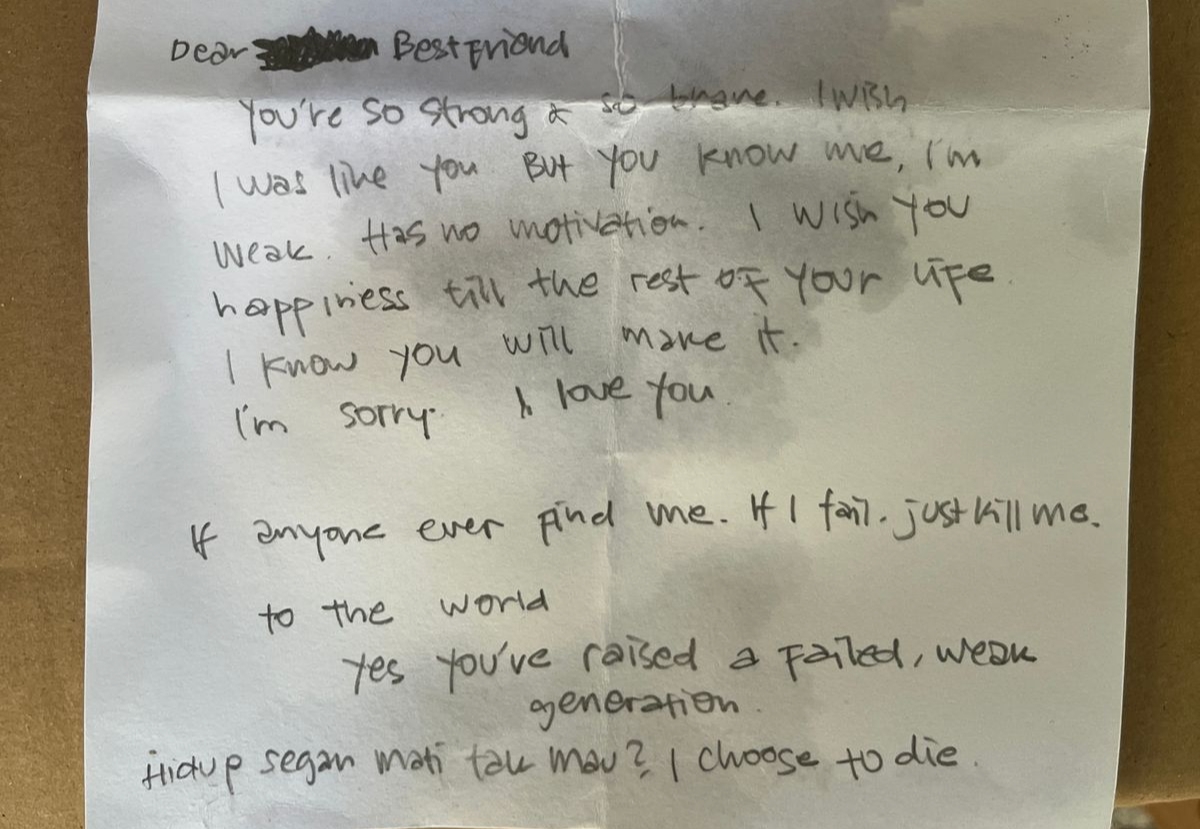 Dear Best Friend
You're so strong & so brave. I wish
I was like you. But you know me, I'm
weak. Has no motivation. I wish you
happiness till the rest of your life.
I know you will make it.
I'm sorry. I love you.
If anyone ever find me. If I fail. just kill me.
to the world
Yes you've raised a failed, weak
generation.
Hidup segan mati tak mau? I choose to die.